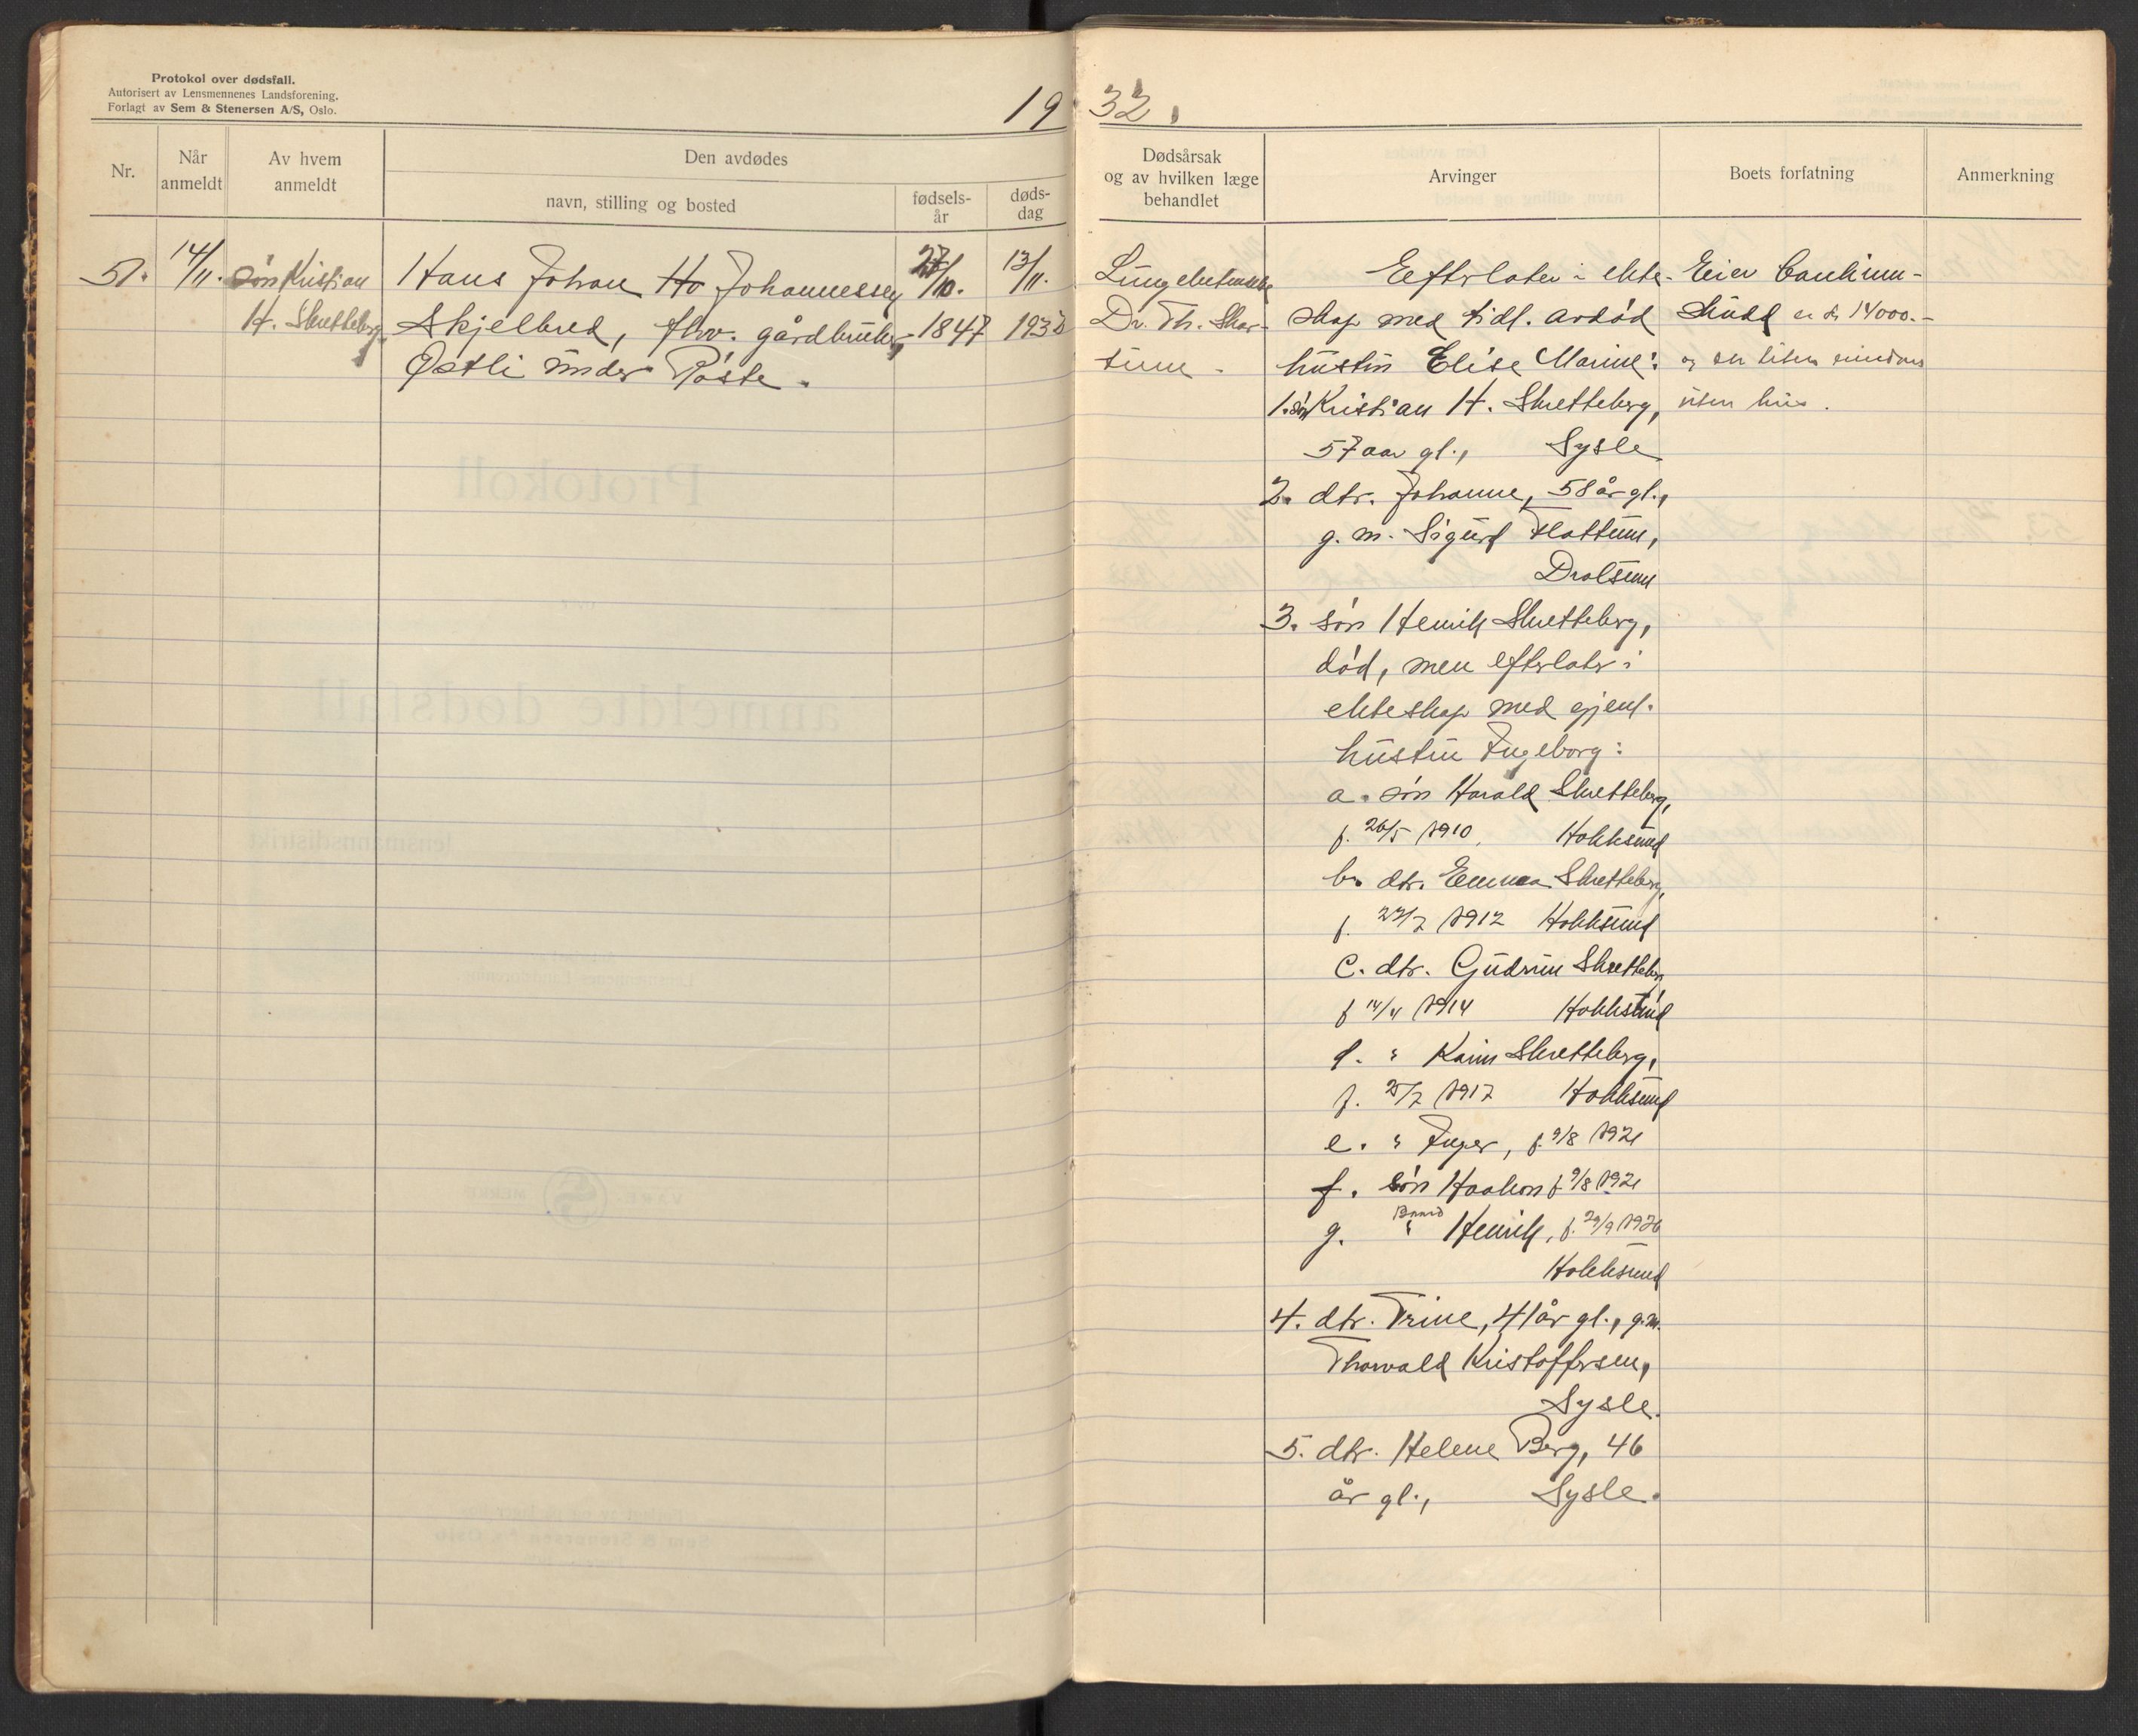 Protokol over dødsfall.
Autorisert av Lensmennenes Landsforening.
Forlagt av Sem & Stenersen A/S, Oslo.
19 32.
Nr.
Når anmeldt
Av hvem anmeldt
Den avdødes
navn, stilling og bosted
fødsels-år
døds-dag
Dødsårsak og av hvilken læge behandlet
Arvinger
Boets forfatning
Anmerkning
51.
14/11.
søn Kristian
H. Skretteberg
Hans Johan Johannessen
Skjelbred, fhv. gårdbruker,
Østli under Påste.
27/10.
1847
13/11.
1932
Dr. Th. Skar-
tum.
Efterlater i ekte-
skap med tidl. avdød
hustru Elise Marine:
1. søn Kristian H. Skretteberg,
57 aar gl., Sysle
2. dtr. Johanne, 58 år gl.,
g. m. Sigurd Flattum,
Drolsum
3. søn Henrik Skretteberg,
død, men efterlater i
ekteskap med gjenl.
hustru Ingeborg:
a. søn Harald Skretteberg,
f. 26/5 1910, Hokksund
b. dtr. Emma Skretteberg,
f. 1912 Hokksund
c. dtr. Gudrun Skretteberg
f 14/4 1914 Hokksund
d. " Karin Skretteberg,
f. 1917 Hokksund
e. " Inger, f. 9/8 1921
f. søn Haakon f. 9/8 1921
g. " Henrik, f. 29/9 1926
Hokksund
4. dtr. Trine, 41 år gl., g.m.
Thorvald Kristoffersen,
Sysle.
5. dtr. Helene Berg, 46
år gl., Sysle.
Eier bankinn-
skudd ca kr 14000.-
og en liten eiendom
uten hus.